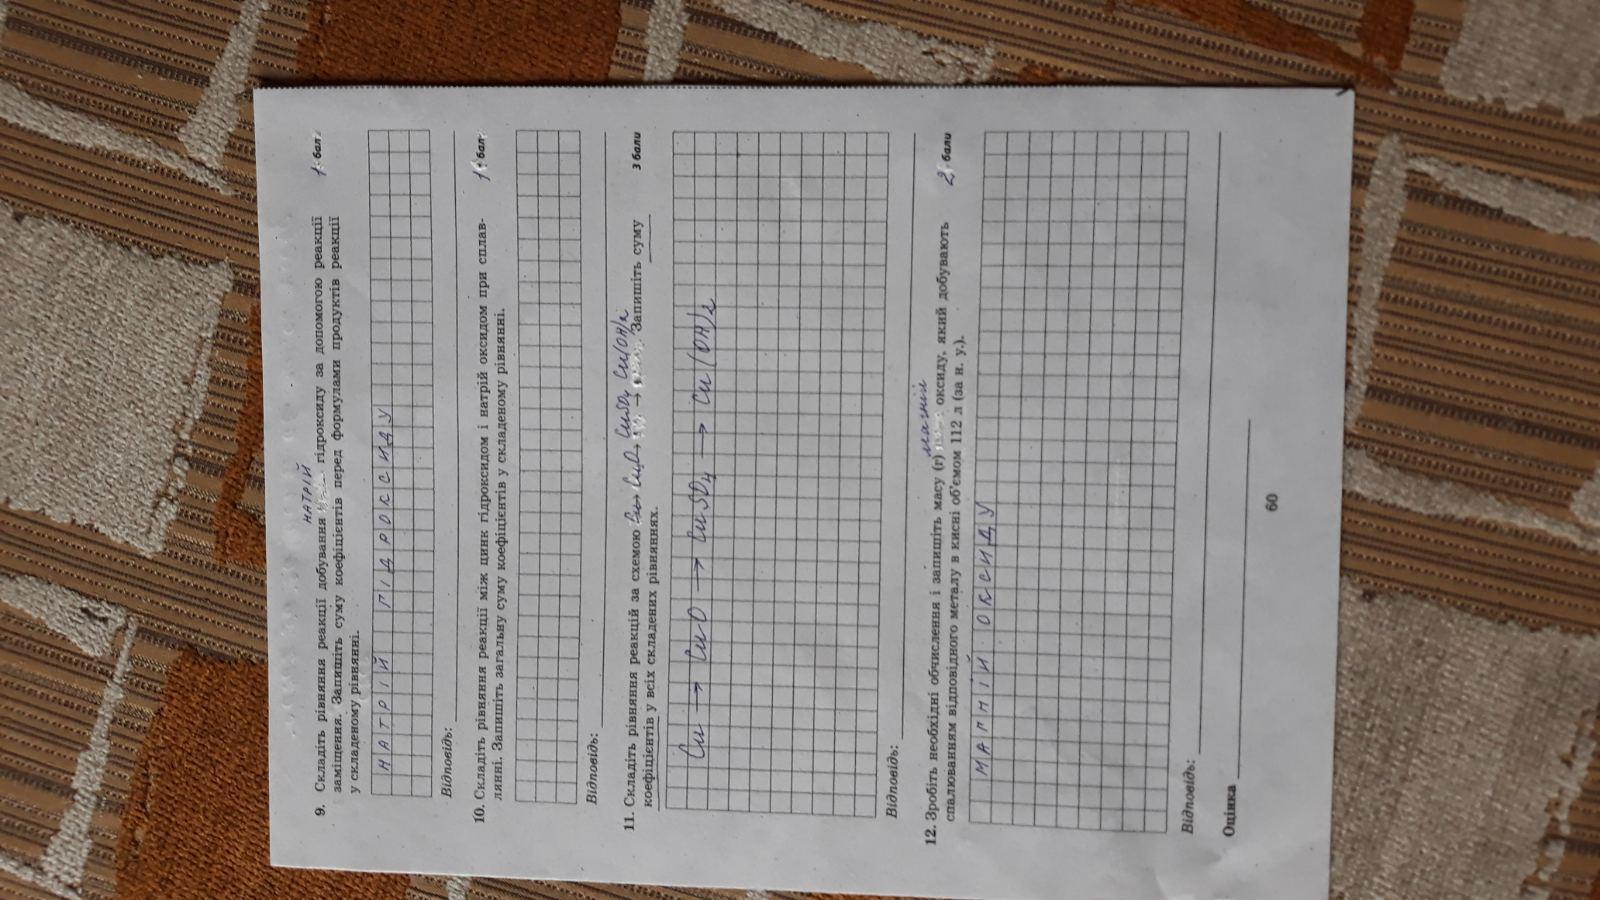 натрій
9. Складіть рівняння реакції добування гідроксиду за допомогою реакції 1 бал
заміщення. Запишіть суму коефіцієнтів перед формулами продуктів реакції
у складеному рівнянні.
НАТРІЙ ГІДРОКСИДУ
Відповідь:
10. Складіть рівняння реакції між цинк гідроксидом і натрій оксидом при сплав- 1 бал
лянні. Запишіть загальну суму коефіцієнтів у складеному рівнянні.
Відповідь:
11. Складіть рівняння реакцій за схемою Cu→ CuO→ CuSO4 → Cu(OH)2 Запишіть суму 3 бали
коефіцієнтів у всіх складених рівняннях.
Cu → CuO → CuSO4 → Cu(OH)2
Відповідь:
магній
12. Зробіть необхідні обчислення і запишіть масу (г) оксиду, який добувають 2 бали
спалюванням відповідного металу в кисні об'ємом 112 л (за н. у.).
МАГНІЙ ОКСИДУ
Відповідь:
Оцінка
60